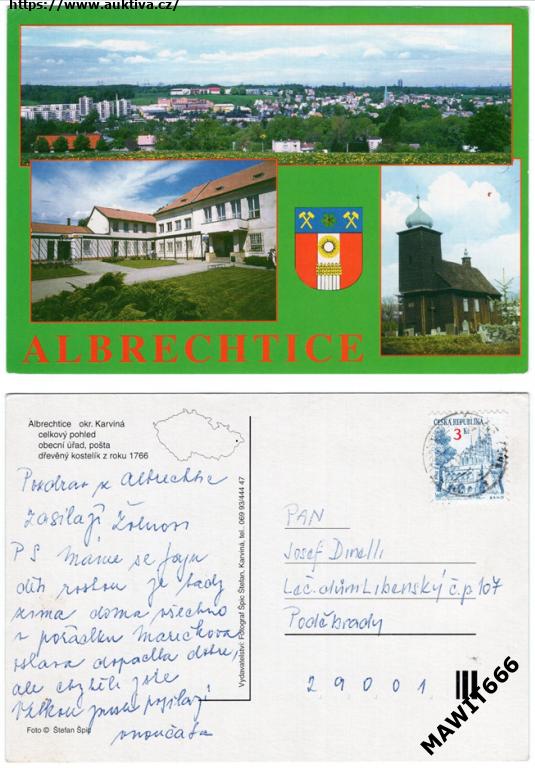 https://www.auktiva.cz/
ALBRECHTICE
Albrechtice okr. Karviná
celkový pohled
obecní úřad, pošta
dřevěný kostelík z roku 1766
Pozdrav z Albrechtic
zasílají
PS Máme se fajn
děti rostou je tady
zima doma všechno
v pořádku Maříčkova
oslava dopadla dobře,
ale chyběli jste
Velkou pusu posílají
vnoučata
Foto © Štefan Špic
Vydavatelství: Fotograf Špic Štefan, Karviná, tel.: 069 93/444 47
ČESKÁ REPUBLIKA
3 Kč
PAN
Josef Dinelli
Léč. dům Libenský č.p 107
Poděbrady
29001
MAWIT666